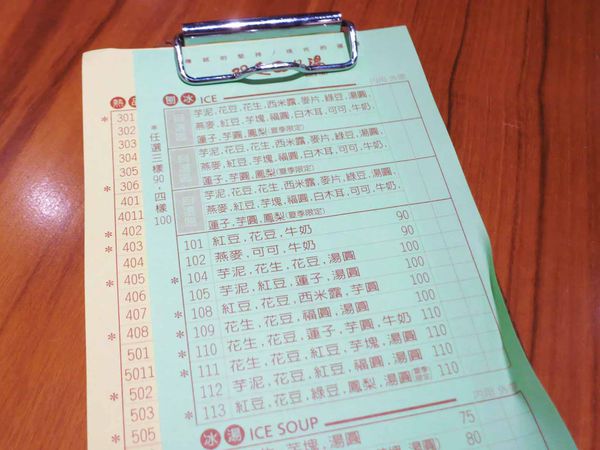 熱
* 301
302
303
* 304
305
* 306
401
4011
* 402
* 404
405
406
407
* 408
501
5011
* 502
503
* 505
刨冰 ICE
內用 外帶
*任選三樣90,四樣100
芋泥,花豆,花生,西米露,麥片,綠豆,湯圓,
燕麥,紅豆,芋塊,福圓,白木耳,可可,牛奶,
蓮子,芋圓,鳳梨(夏季限定)
芋泥,花豆,花生,西米露,麥片,綠豆,湯圓,
燕麥,紅豆,芋塊,福圓,白木耳,可可,牛奶,
蓮子,芋圓,鳳梨(夏季限定)
芋泥,花豆,花生,西米露,麥片,綠豆,湯圓,
燕麥,紅豆,芋塊,福圓,白木耳,可可,牛奶,
蓮子,芋圓,鳳梨(夏季限定)
101 紅豆,花豆,牛奶 90
102 燕麥,可可,牛奶 90
* 104 芋泥,花生,花豆,湯圓 100
105 芋泥,紅豆,蓮子,湯圓 100
* 108 紅豆,花豆,西米露,芋圓 100
* 109 花生,花豆,福圓,湯圓 100
* 110 花生,花豆,蓮子,芋圓,牛奶 110
* 111 花生,花豆,紅豆,芋塊,湯圓 110
112 芋泥,花豆,紅豆,福圓,湯圓 110
* 113 紅豆,花豆,綠豆,鳳梨,湯圓 夏季限定 110
冰湯 ICE SOUP
內用 外帶
芋塊,湯圓 75
湯圓 80